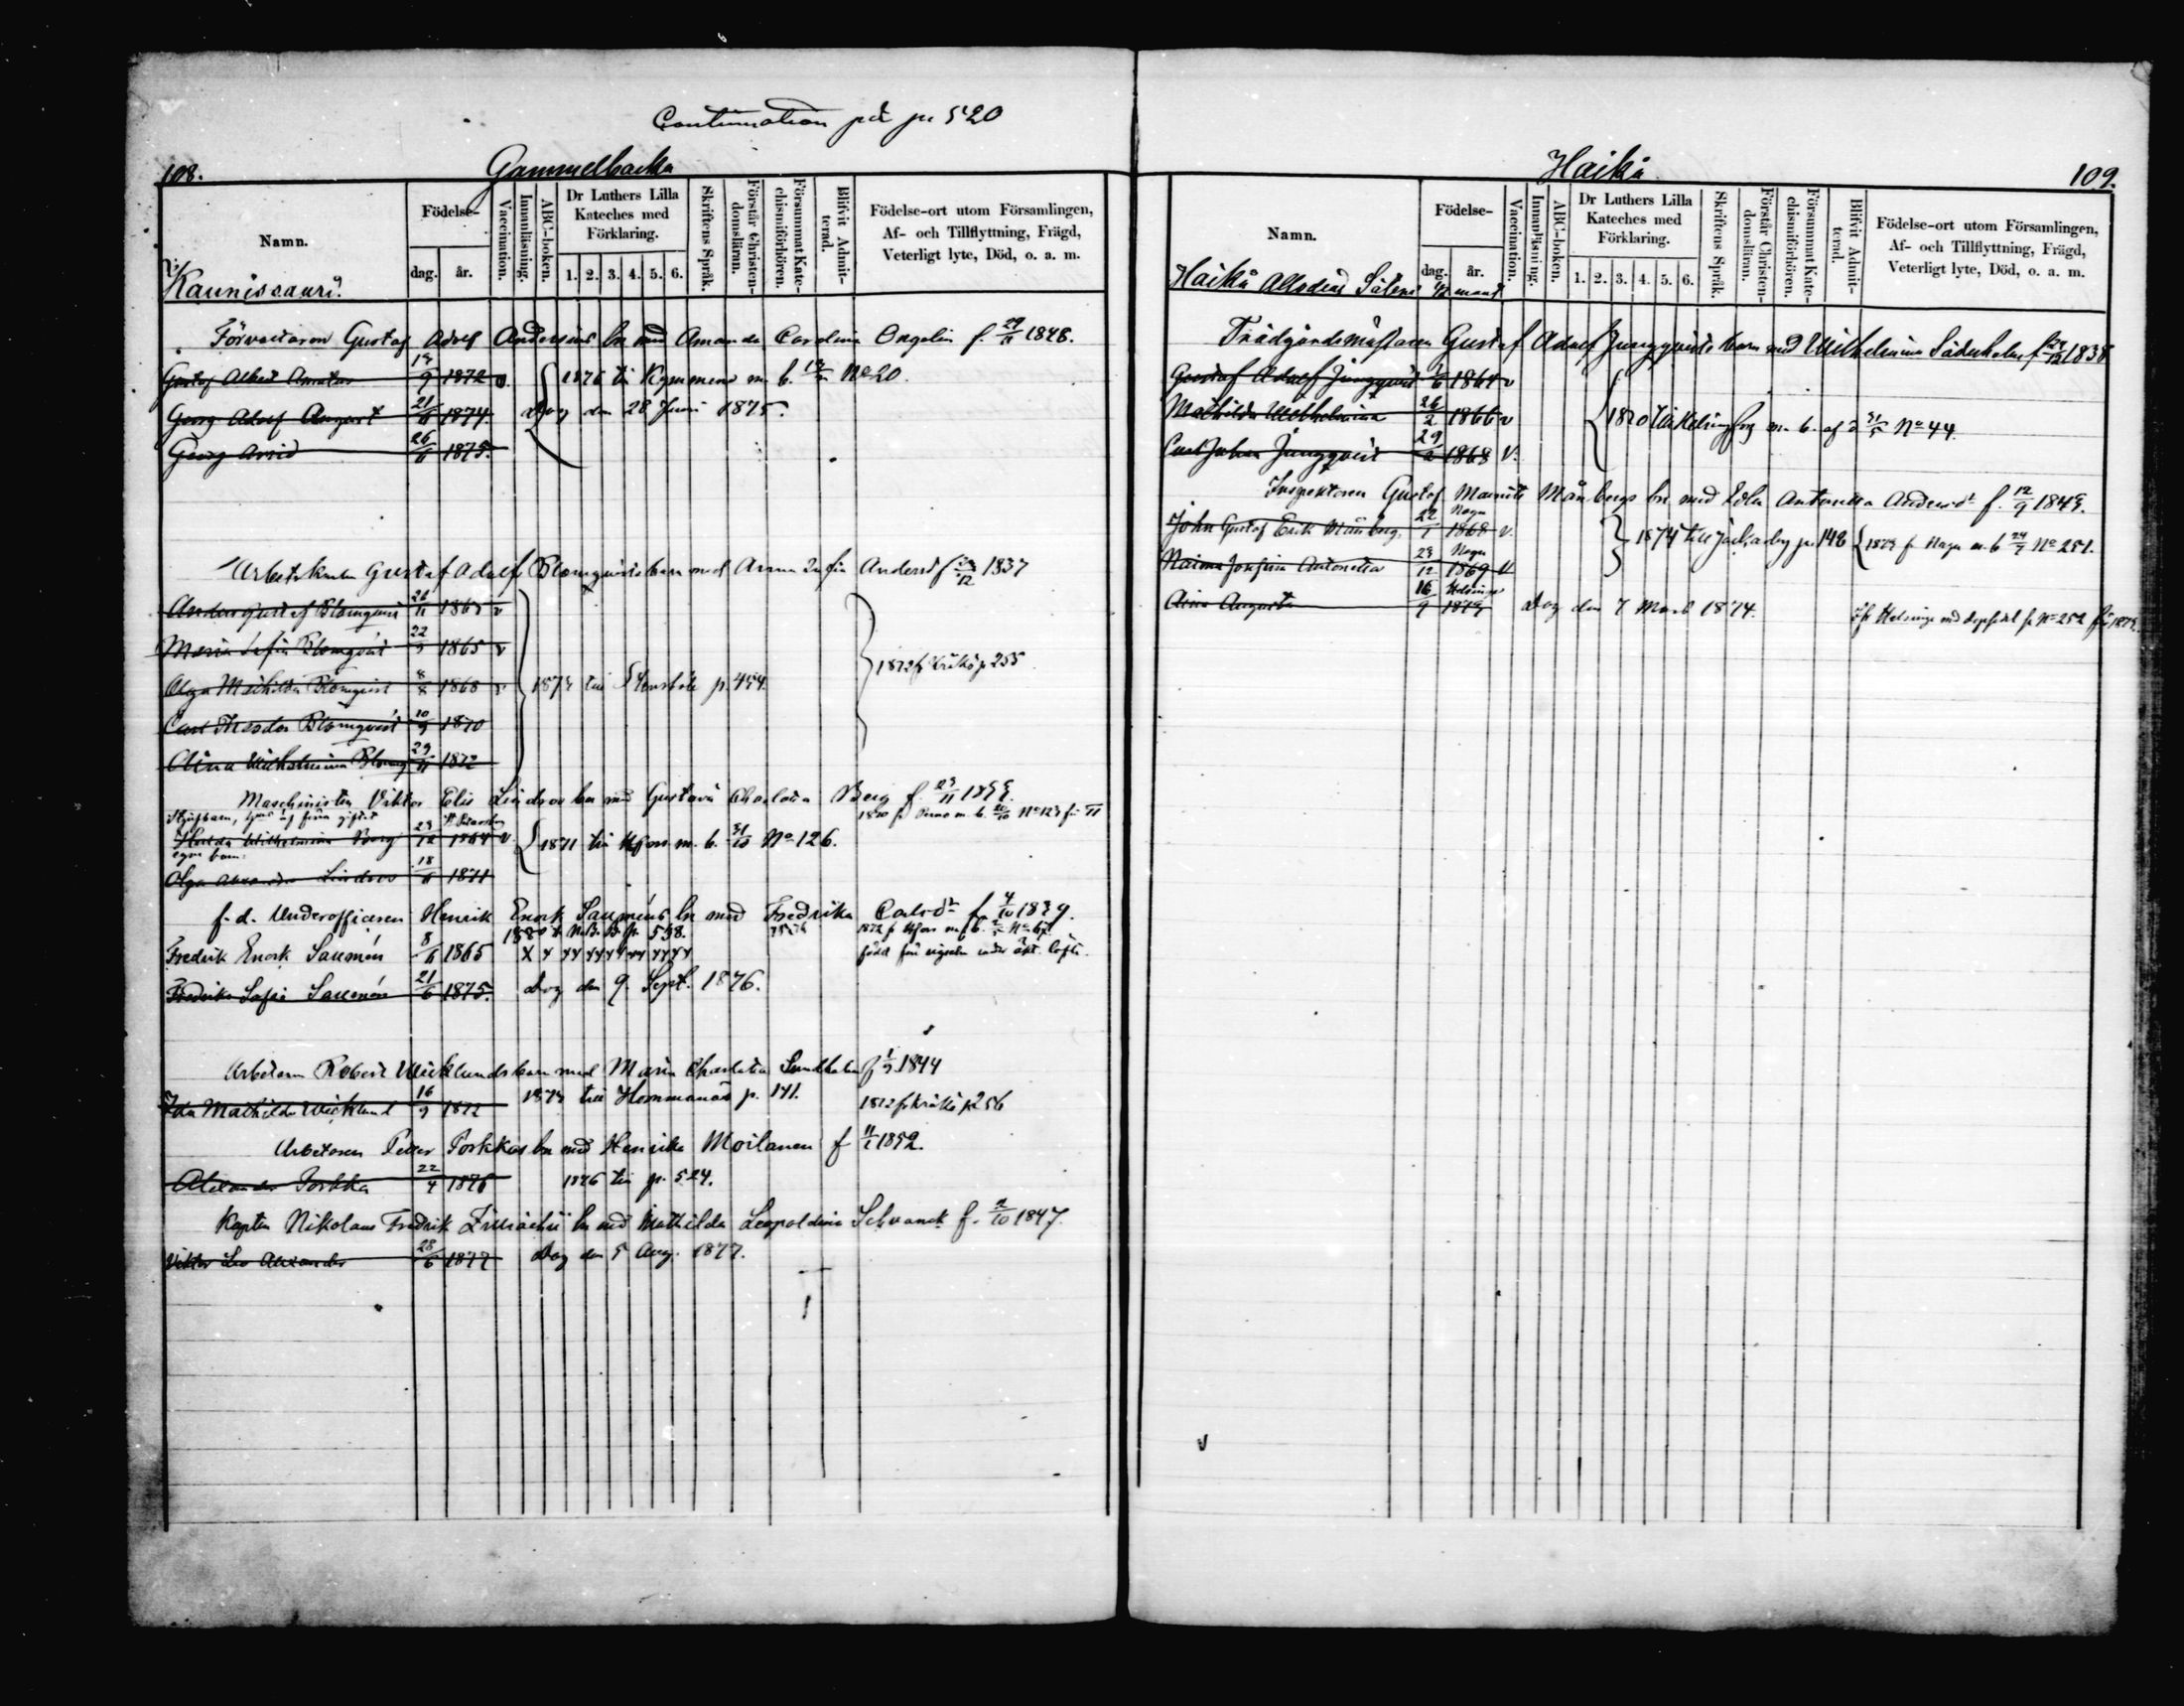 Continuation på p. 520
108.
Gammelbacka
Namn.
Födelse-
dag.
år.
Vaccination.
Innanläsning.
ABC-boken.
Dr Luthers Lilla
Kateches med
Förklaring.
1. 2. 3. 4. 5. 6.
Skriftens Språk.
Förstår Christen-
domsläran.
Försummat Kate-
chismiförhören.
Blifvit Admit-
terad.
Födelse-ort utom Församlingen,
Af- och Tillflyttning, Frägd,
Veterligt lyte, Död, o. a. m.
Kaunissaari.
Förvaltaren Gustaf Adolf Andersins bn med Amanda Carolina Engelin f. 29/11 1848.
Gustaf Albert 9 1872 v. 1876 till Kymmene m. b. No 20.
Georg Adolf August 21/6 1874 Dog den 28 Juni 1875.
Georg Arvid 26/6 1875.
Arbetskarlen Gustaf Adolf Blomqvists barn med Anna Sofia Andersd f 12 1837
Anders Gustaf Blomqvist 26/11 1863 v
Maria Sofia Blomqvist 22 1865 v
Olga Mathilda Blomqvist 8/8 1868 v 1873 till Stensböle p. 454. 1872 fr Kråkö p 255
Carl Theodor Blomqvist 10/9 1870
Alina Wilhelmina Blomq 29/11 1872
Maschinisten Viktor Elis Lindroos bn med Gustava Charlotta Berg f. 23/11
Styfbarn,
1870 fr Perno m. b. 20/10 No 123
Hulda Wilhelmina Berg 23/12 1864 v. 1871 till Hfors m. b. 31/10 No 126.
egna barn:
Olga Alexandra Lindroos 18/6 1871
f. d. Underofficeren Henrik Enock Sauméns bn med Fredrika Carlsdr f. 4/10 1839.
1880 t. N. B. B. p. 538.
1872 fr Hfors m. b. No 67.
Fredrik Enock Saumén 8/6 1865
född före vigseln under äkt. löfte.
Fredrika Sofia Saumén 21/6 1875. Dog den 9. Sept. 1876.
Arbetaren Robert Wicklunds barn med Maria Charlotta Sundholm f 1844
Ida Mathilda Wicklund 16/9 1872 1873 till Hommanäs p. 141. 1872 fr Kråkö p 256
Arbetaren Petter Porkkas bn med Henrika Moilanen f 11/1 1852.
Alexander Porkka 22/4 1876 1876 till p. 524.
Kapten Nikolaus Fredrik Zilliachi bn med Mathilda Leopoldina Schvanck f. 2/10 1847.
Viktor Leo Alexander 28/6 1877 Dog den 5 Aug. 1877.
Haikå
109.
Namn.
Födelse-
dag.
år.
Vaccination.
Innanläsning.
ABC-boken.
Dr Luthers Lilla
Kateches med
Förklaring.
1. 2. 3. 4. 5. 6.
Skriftens Språk.
Förstår Christen-
domsläran.
Försummat Kate-
chismiförhören.
Blifvit Admit-
terad.
Födelse-ort utom Församlingen,
Af- och Tillflyttning, Frägd,
Veterligt lyte, Död, o. a. m.
Haikå Allodial Säteri mant
Trädgårdsmästaren Gustaf Adolf Jungqvists barn med Wilhelmina Söderholm f 1838
Gustaf Adolf Jungqvist 1/6 1864 v
Mathilda Wilhelmina 26/2 1866 v 1870 till Helsingfors m. b. af d 31/5 No 44.
Carl Johan Jungqvist 29/2 1868 v.
Inspektoren Gustaf Maurits Månbergs bn med Edla Antonetta Andersdr f. 12/9 1843.
Nagu
John Gustaf Erik Månberg. 22/1 1868 v. 1874 till Jackarby p. 148 1873 fr Nagu m. b. 24/7 No 251.
Nagu
Naima Josefina Antonetta 23/12 1869 v
Helsinge
Aina Augusta 16/9 1873 Dog den 7 Mars 1874.